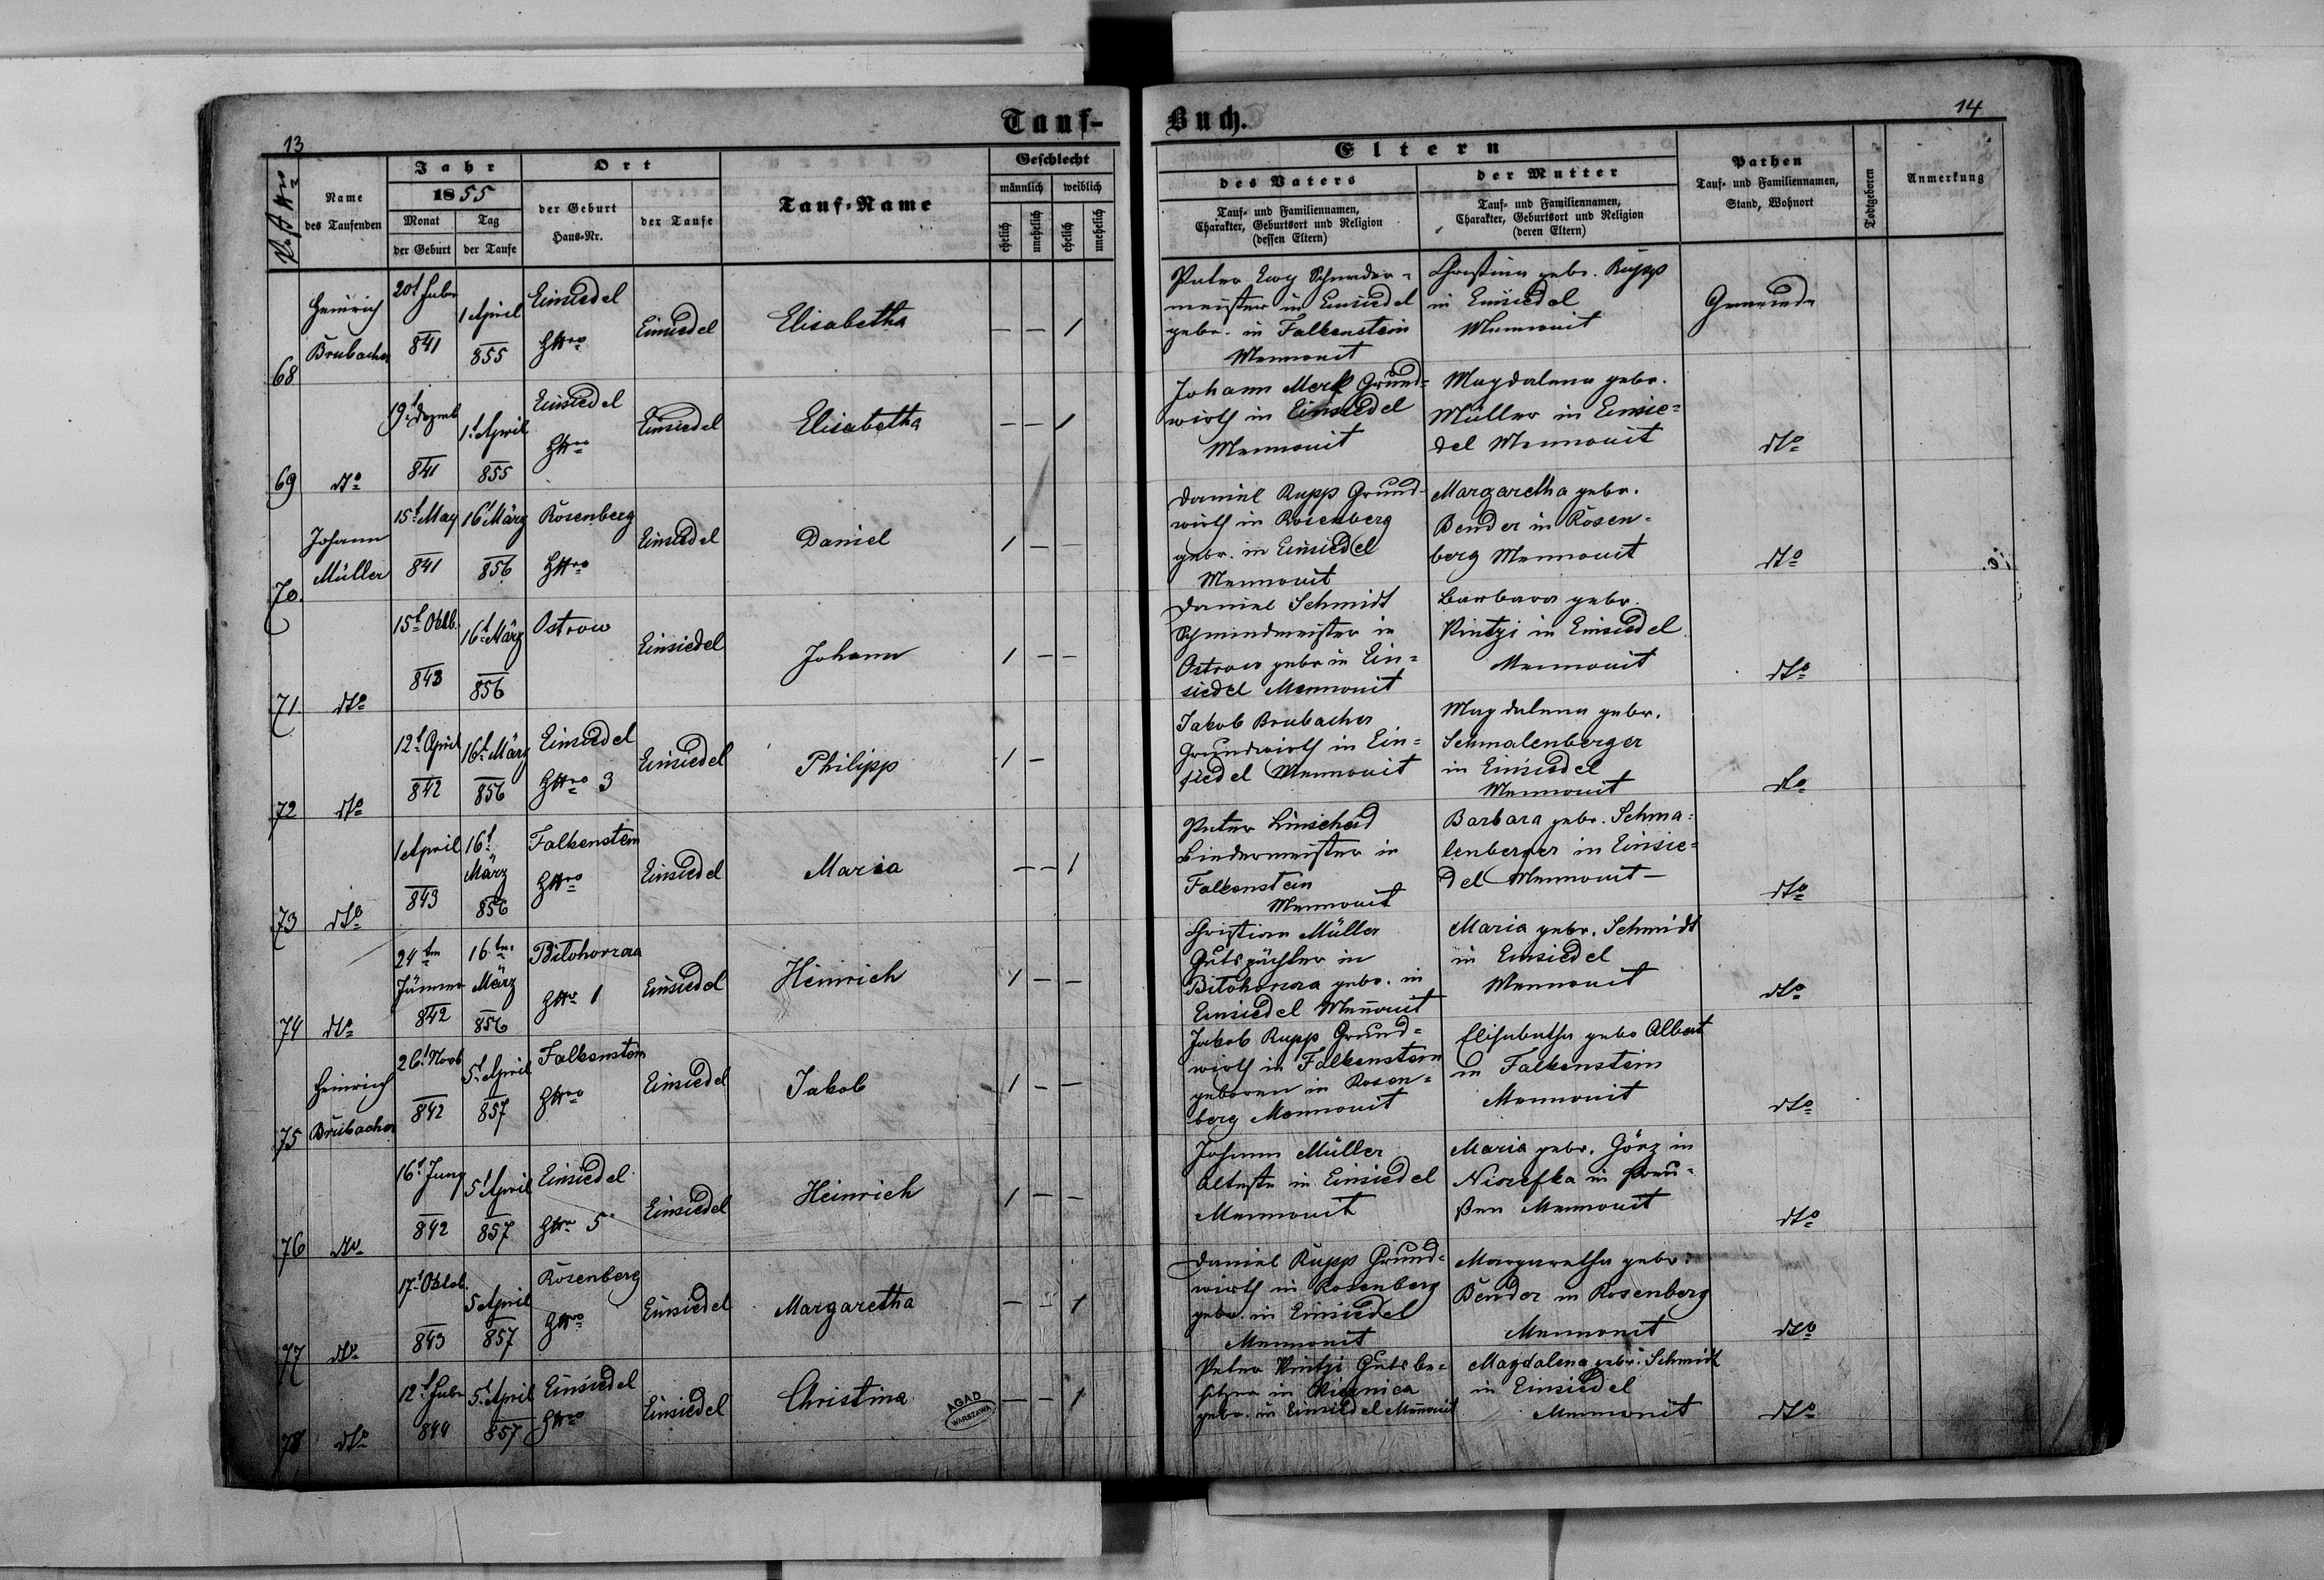 13
Tauf-
Buch.
14
Post Nro
Name
des Taufenden
Jahr
1855
Monat
der Geburt
Tag
der Taufe
Ort
der Geburt
Haus-Nr.
der Taufe
Tauf-Name
Geschlecht
männlich weiblich
ehelich
unehelich
ehelich
unehelich
Eltern
des Vaters
Tauf- und Familiennamen,
Charakter, Geburtsort und Religion
(dessen Eltern)
der Mutter
Tauf- und Familiennamen,
Charakter, Geburtsort und Religion
(deren Eltern)
Pathen
Tauf- und Familiennamen,
Stand, Wohnort
Todtgeboren
Anmerkung
68
Heinrich
Brubacher
20t Febr
841
1 April
855
Einsiedel
HNro
Einsiedel
Elisabetha
— — 1
Peter Ewy Schneider-
meister in Einsiedel
gebr. in Falkenstein
Mennonit
Christina gebr. Rupp
in Einsiedel
Mennonit
Gemeinde
69
dto
19t Dezemb
841
1t April
855
Einsiedel
HNro
Einsiedel
Elisabetha
— — 1
Johann Merk Grund-
wirth in Einsiedel
Mennonit
Magdalena gebr.
Müller in Einsie-
del Mennonit
dto
70.
Johann
Müller
15t May
841
16t März
856
Rosenberg
HNro
Einsiedel
Daniel
1 — —
Daniel Rupp Grund-
wirth in Rosenberg
gebr. in Einsiedel
Mennonit
Margaretha gebr.
Bender in Rosen-
berg Mennonit
dto
71.
dto
15t Oktb.
843
16t März
856
Ostrow
Einsiedel
Johann
1 — —
Daniel Schmidt
Schmiedmeister in
Ostrow gebr in Ein-
siedel Mennonit
Barbara gebr.
Kintzi in Einsiedel
Mennonit
dto
72
dto
12t April
842
16t März
856
Einsiedel
HNro 3
Einsiedel
Philipp
1 —
Jakob Brubacher
Grundwirth in Ein-
siedel Mennonit
Magdalena gebr.
Schmalenberger
in Einsiedel
Mennonit
dto
73
dto
1 April
843
16t
März
856
Falkenstein
HNro
Einsiedel
Maria
— — 1
Peter Linscheid
Bindermeister in
Falkenstein
Mennonit
Barbara gebr. Schma-
lenberger in Einsie-
del Mennonit —
dto
74
dto
24tn
Jänner
842
16tn
März
856
Bilohorzaa
HNro 1
Einsiedel
Heinrich
1 — —
Christian Müller
Gutspächter in
Bilohorzaa gebr. in
Einsiedel Menonit
Maria gebr. Schmidt
in Einsiedel
Mennonit
dto
75
Heinrich
Brubacher
26t Novb
842
5t April
857
Falkenstein
HNro
Einsiedel
Jakob
1 — —
Jakob Rupp Grund-
wirth in Falkenstein
geboren in Rosen-
berg Mennonit
Elisabetha gebr Albert
in Falkenstein
Mennonit
dto
76
dto
16t Juny
842
5t April
857
Einsiedel
HNro 5
Einsiedel
Heinrich
1 — —
Johann Müller
Älteste in Einsiedel
Mennonit
Maria gebr. Görz in
Niszefka in Preu-
ßen Mennonit
dto
77
dto
17t Oktob.
843
5 April
857
Rosenberg
HNro
Einsiedel
Margaretha
— — 1
Daniel Rupp Grund-
wirth in Rosenberg
gebr. in Einsiedel
Mennonit
Margaretha gebr.
Bender in Rosenberg
Mennonit
dto
78
dto
12t Febr
844
5t April
857
Einsiedel
HNro
Einsiedel
Christina
AGAD
WARSZAWA
— — 1
Peter Kintzi Gutsbe-
sitzer in
gebr. in Einsiedel Menonit
Magdalena gebr. Schmidt
in Einsiedel
Mennonit
dto